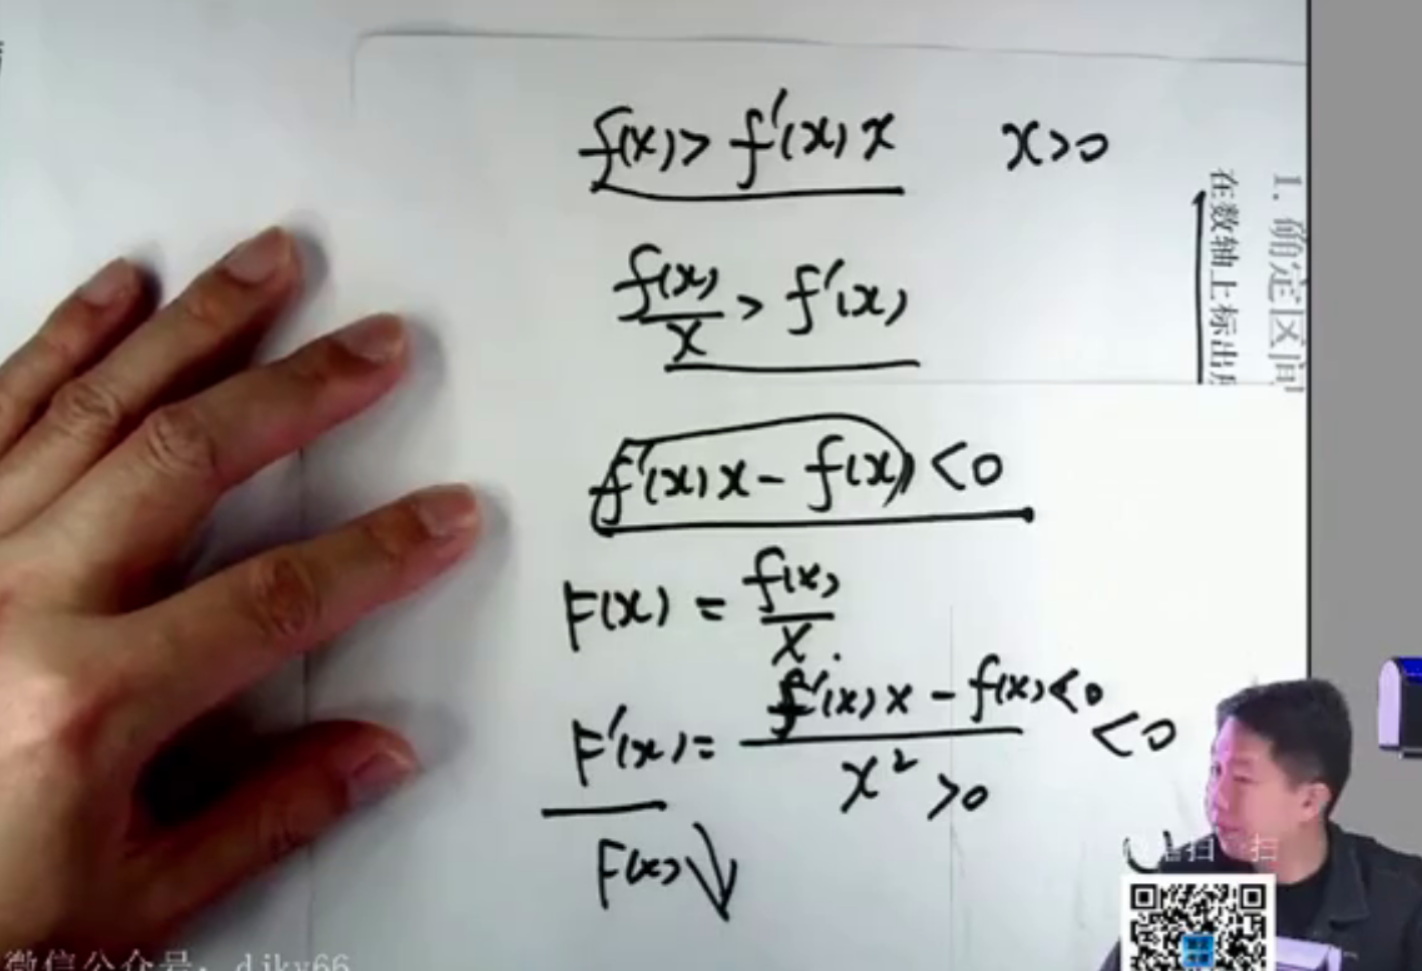 f(x) > f'(x) x    x>0
f(x)/x > f'(x)
f'(x) x - f(x) < 0
F(x) = f(x)/x.
F'(x) = f'(x) x - f(x) <0 / x² >0 <0
F(x) ↘
1. 确定区间
在数轴上标出
扫一扫
微信公众号: djky66